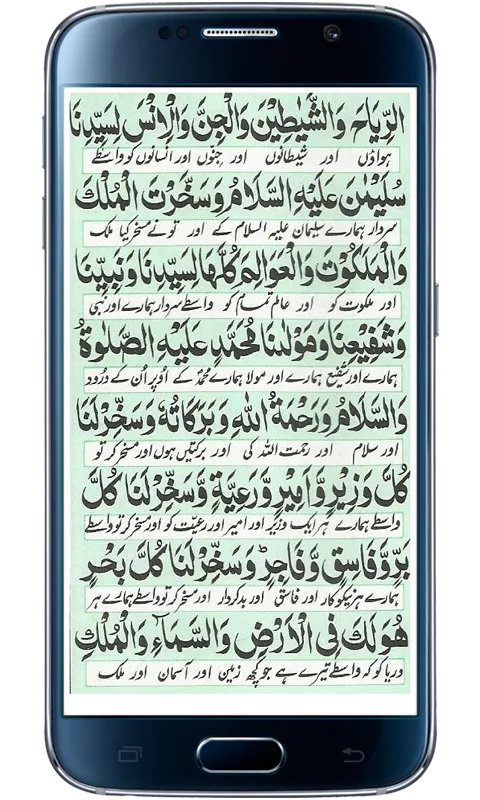 الرِّيَاحَ وَالشَّيٰطِيْنَ وَالْجِنَّ وَالْاِنْسَ لِسَيِّدِنَا
ہواؤں اور شیطانوں اور جنوں اور انسانوں کو واسطے
سُلَيْمٰنَ عَلَيْهِ السَّلَامُ وَسَخَّرْتَ الْمُلْكَ
سردار ہمارے سلیمان علیہ السلام کے اور تو نے مسخر کیا ملک
وَالْمَلَكُوْتَ وَالْعَوَالِمَ كُلَّهَا لِسَيِّدِنَا وَنَبِيِّنَا
اور ملکوت کو اور عالم تمام کو واسطے سردار ہمارے اور نبی
وَشَفِيْعِنَا وَمَوْلٰىنَا مُحَمَّدٍ عَلَيْهِ الصَّلٰوةُ
ہمارے اور شفیع ہمارے اور مولا ہمارے محمدؐ کے اُوپر اُن کے درُود
وَالسَّلَامُ وَرَحْمَةُ اللهِ وَبَرَكَاتُهٗ وَسَخِّرْلَنَا
اور سلام اور رحمت اللہ کی اور برکتیں ہوں اور مسخر کر تو
كُلَّ وَزِيْرٍ وَّاَمِيْرٍ وَّرَعِيَّةٍ وَّسَخِّرْ لَنَا كُلَّ
واسطے ہمارے ہر ایک وزیر اور امیر اور رعیّت کو اور مسخر کر تو واسطے
بَرٍّ وَّفَاسِقٍ وَّفَاجِرٍ ؕ وَسَخِّرْ لَنَا كُلَّ بَحْرٍ
ہمارے ہر نیکوکار اور فاسق اور بدکردار اور مسخر کر تو واسطے ہمارے ہر
هُوَ لَكَ فِي الْاَرْضِ وَالسَّمَآءِ وَالْمُلْكِ
دریا کو کہ واسطے تیرے ہے جو کچھ زمین اور آسمان اور ملک